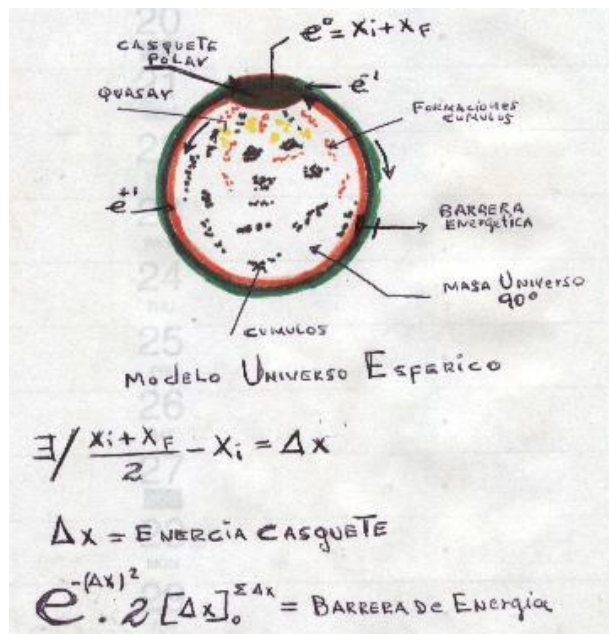 e° = Xi + XF
CASQUETE
POLAR
e⁻¹
QUASAR
FORMACIONES
CUMULOS
e⁺¹
BARRERA
ENERGETICA
MASA UNIVERSO
90°
CUMULOS
MODELO UNIVERSO ESFERICO
∃/ (Xi + XF)/2 - Xi = ΔX
ΔX = ENERCÍA CASQUETE
e^-(ΔX)² . 2 [ΔX]₀^ΣΔX = BARRERA DE ENERGÍA
20
24
25
26
27